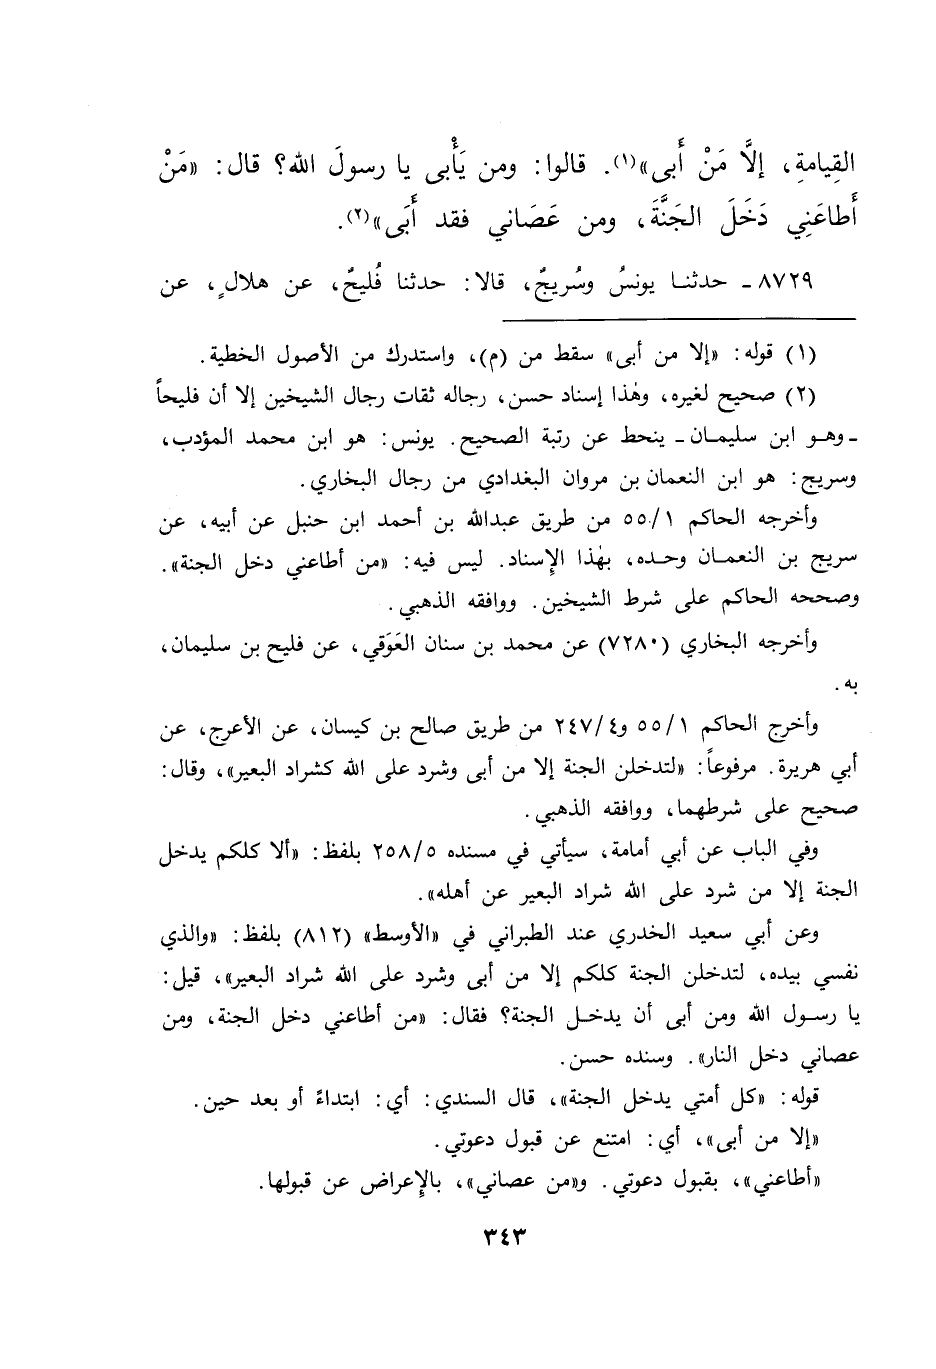 القِيامةِ، إلَّا مَنْ أَبى»(١). قالوا: ومن يَأْبى يا رسولَ الله؟ قال: «مَنْ
أَطاعَنِي دَخَلَ الجَنَّةَ، ومن عَصَاني فقد أَبَى»(٢).
٨٧٢٩ ـ حدثنـا يونسُ وسُريجٌ، قالا: حدثنا فُليحٌ، عن هلالٍ، عن
(١) قوله: «إلا من أبى» سقط من (م)، واستدرك من الأصول الخطية.
(٢) صحيح لغيره، وهٰذا إسناد حسن، رجاله ثقات رجال الشيخين إلا أن فليحاً
ـ وهـو ابن سليمـان ـ ينحط عن رتبة الصحيح. يونس: هو ابن محمد المؤدب،
وسريج: هو ابن النعمان بن مروان البغدادي من رجال البخاري.
وأخرجه الحاكم ٥٥/١ من طريق عبدالله بن أحمد ابن حنبل عن أبيه، عن
سريج بن النعمـان وحـده، بهٰذا الإسناد. ليس فيه: «من أطاعني دخل الجنة».
وصححه الحاكم على شرط الشيخين. ووافقه الذهبي.
وأخرجه البخاري (٧٢٨٠) عن محمد بن سنان العَوَقي، عن فليح بن سليمان،
به.
وأخرج الحاكم ٥٥/١ و٢٤٧/٤ من طريق صالح بن كيسان، عن الأعرج، عن
أبي هريرة. مرفوعاً: «لتدخلن الجنة إلا من أبى وشرد على الله كشراد البعير»، وقال:
صحيح على شرطهما، ووافقه الذهبي.
وفي الباب عن أبي أمامة، سيأتي في مسنده ٢٥٨/٥ بلفظ: «ألا كلكم يدخل
الجنة إلا من شرد على الله شراد البعير عن أهله».
وعن أبي سعيد الخدري عند الطبراني في «الأوسط» (٨١٢) بلفظ: «والذي
نفسي بيده، لتدخلن الجنة كلكم إلا من أبى وشرد على الله شراد البعير»، قيل:
يا رسـول الله ومن أبى أن يدخـل الجنة؟ فقال: «من أطاعني دخل الجنة، ومن
عصاني دخل النار». وسنده حسن.
قوله: «كل أمتي يدخل الجنة»، قال السندي: أي: ابتداءً أو بعد حين.
«إلا من أبى»، أي: امتنع عن قبول دعوتي.
«أطاعني»، بقبول دعوتي. و«من عصاني»، بالإعراض عن قبولها.
٣٤٣